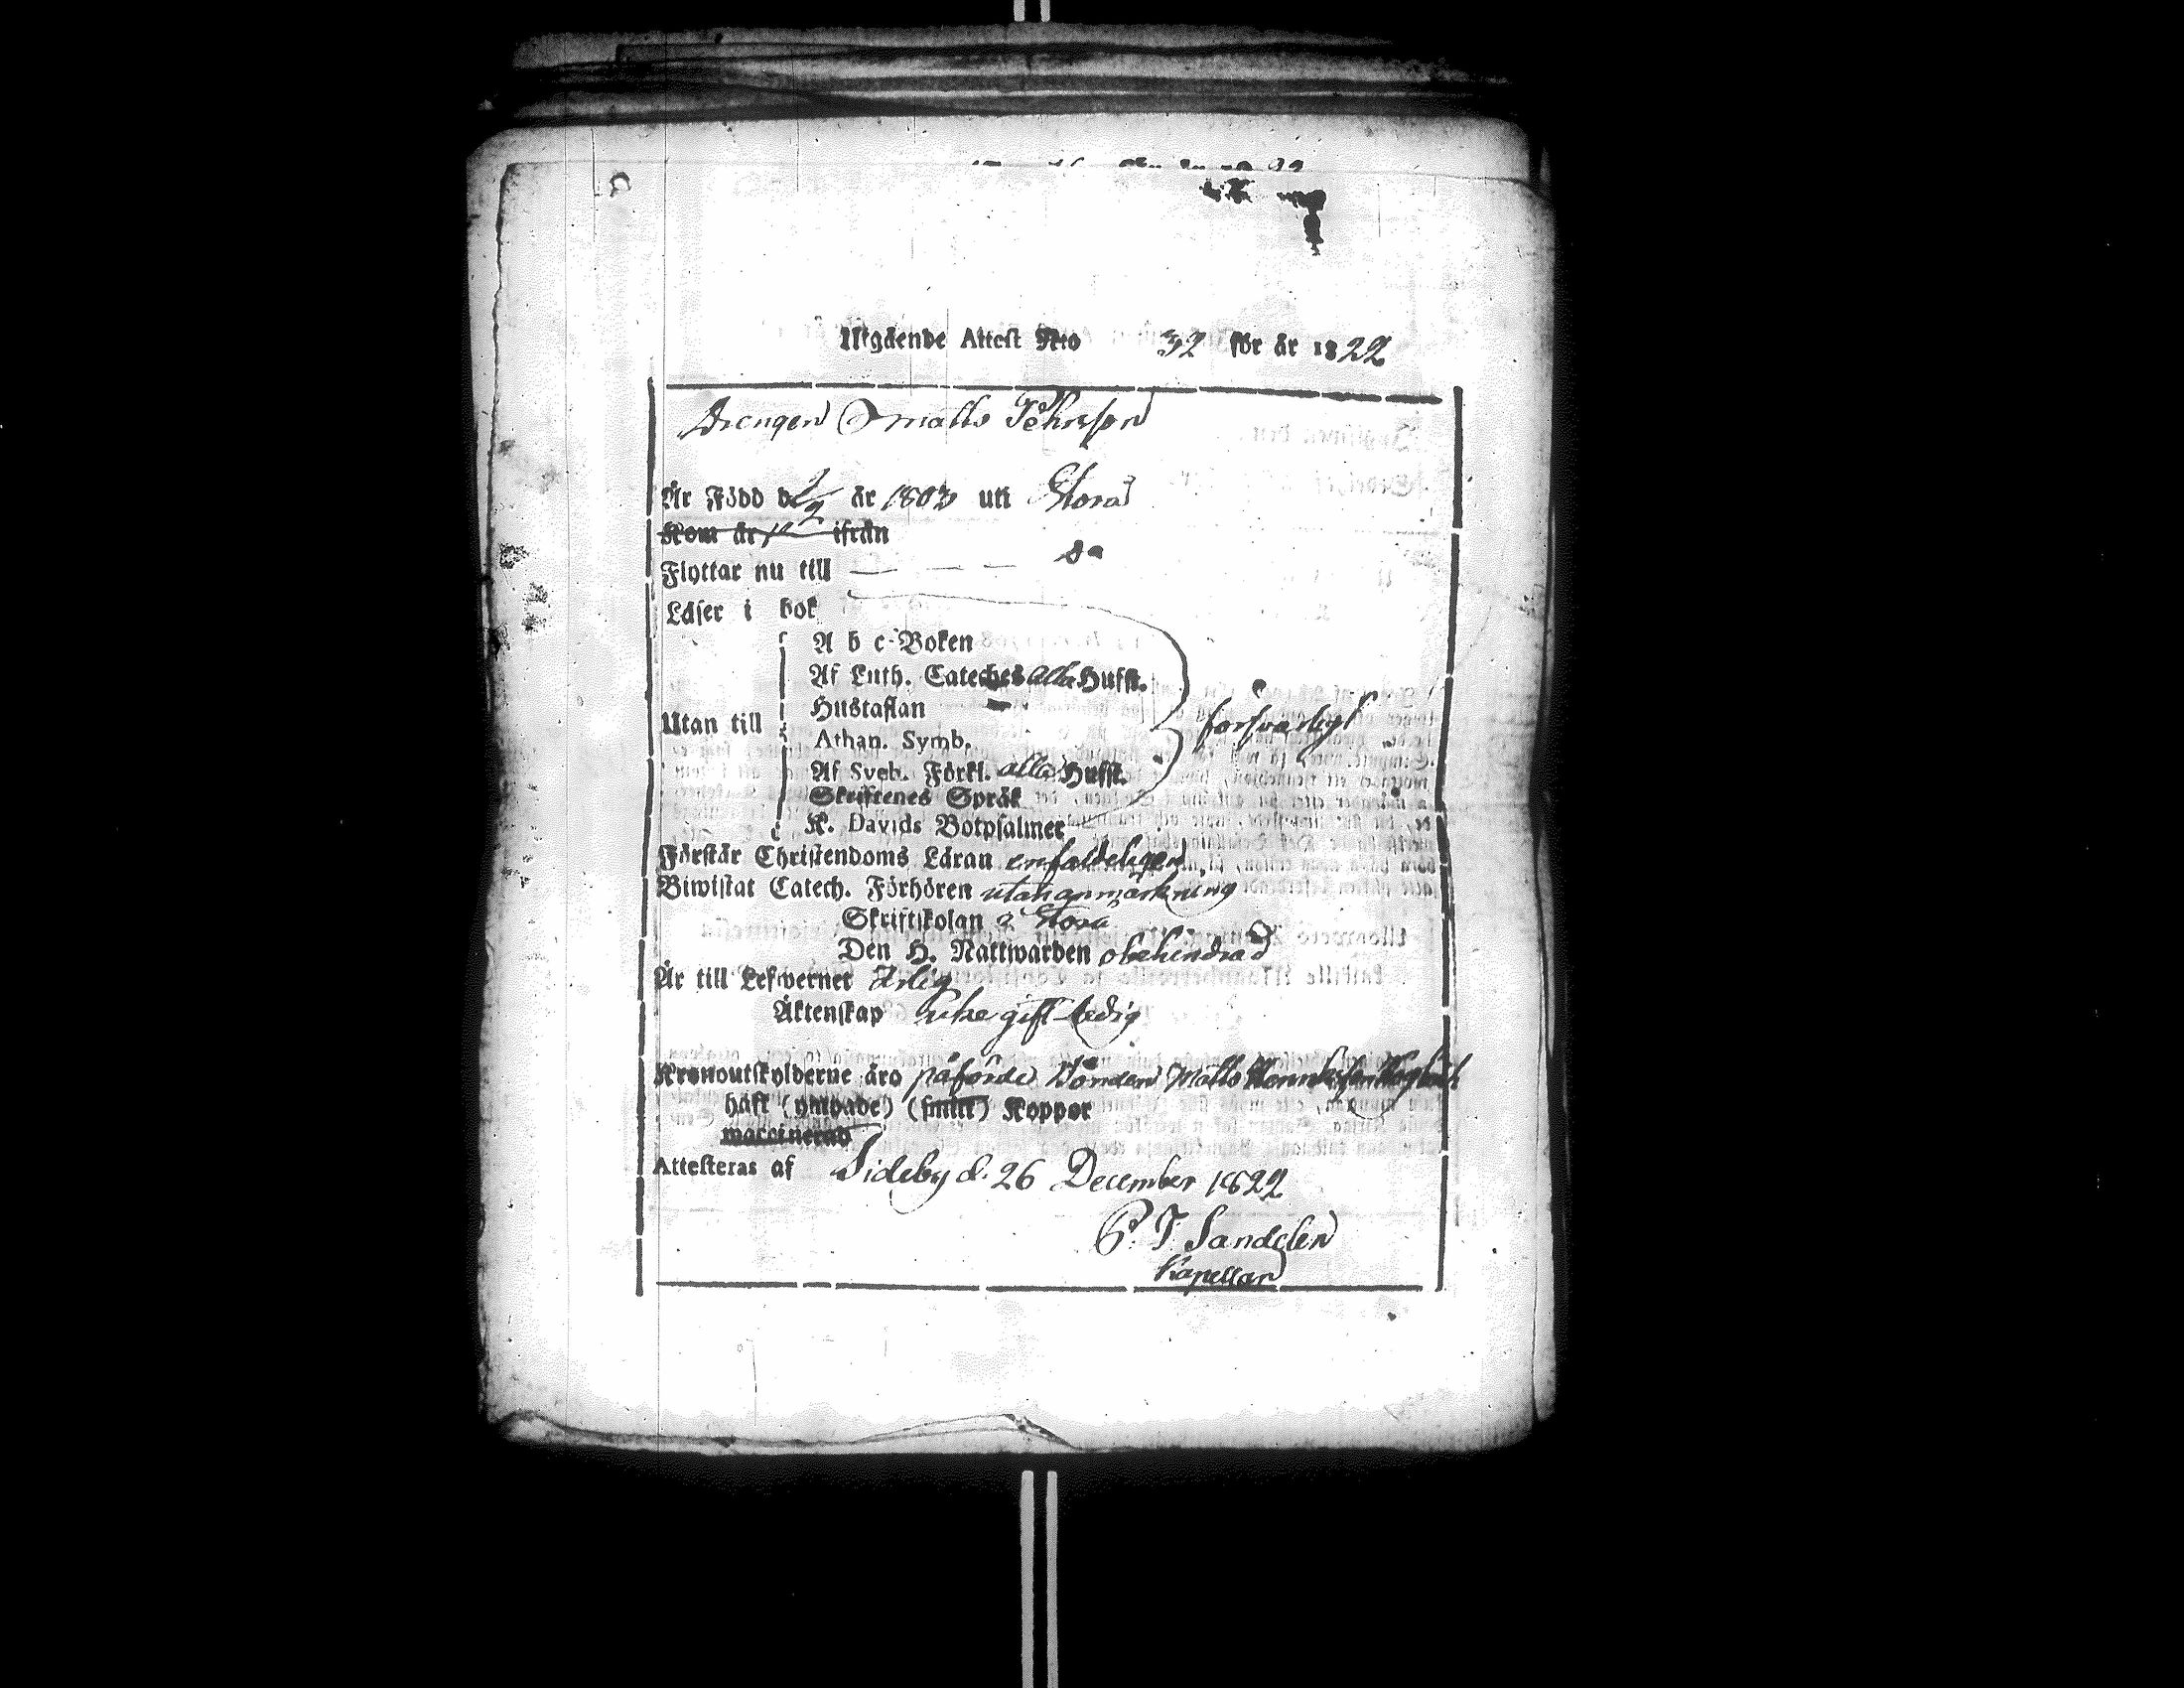 Utgående Attest Nro 32 för år 1822
Drengen Matts Pehrsson
Är Född d. 2/2 år 1803 uti Storå
Kom år 18 ifrån
Flyttar nu till — — — do
Läser i bok
A b c-Boken
Af Luth. Cateches alla Hufst.
Hustaflan
Utan till
försvarligt
Athan. Symb.
Af Sveb. Förkl. alla Hufst.
Skriftenes Språk
K. Davids Botpsalmer
Förstår Christendoms Läran enfaldeligen
Biwistat Catech. Förhören utan anmärkning
Skriftskolan i Storå
Den H. Nattwarden obehindrad
Är till Lefwernet Ärlig
Äktenskap icke gift Ledig
Kronoutskylderne äro påförde Bonden Matts
haft (ympade) (smitt) Koppor
vaccinerad
Attesteras af Sideby d. 26 December 1822
P. J. Sandelin
Kapellan